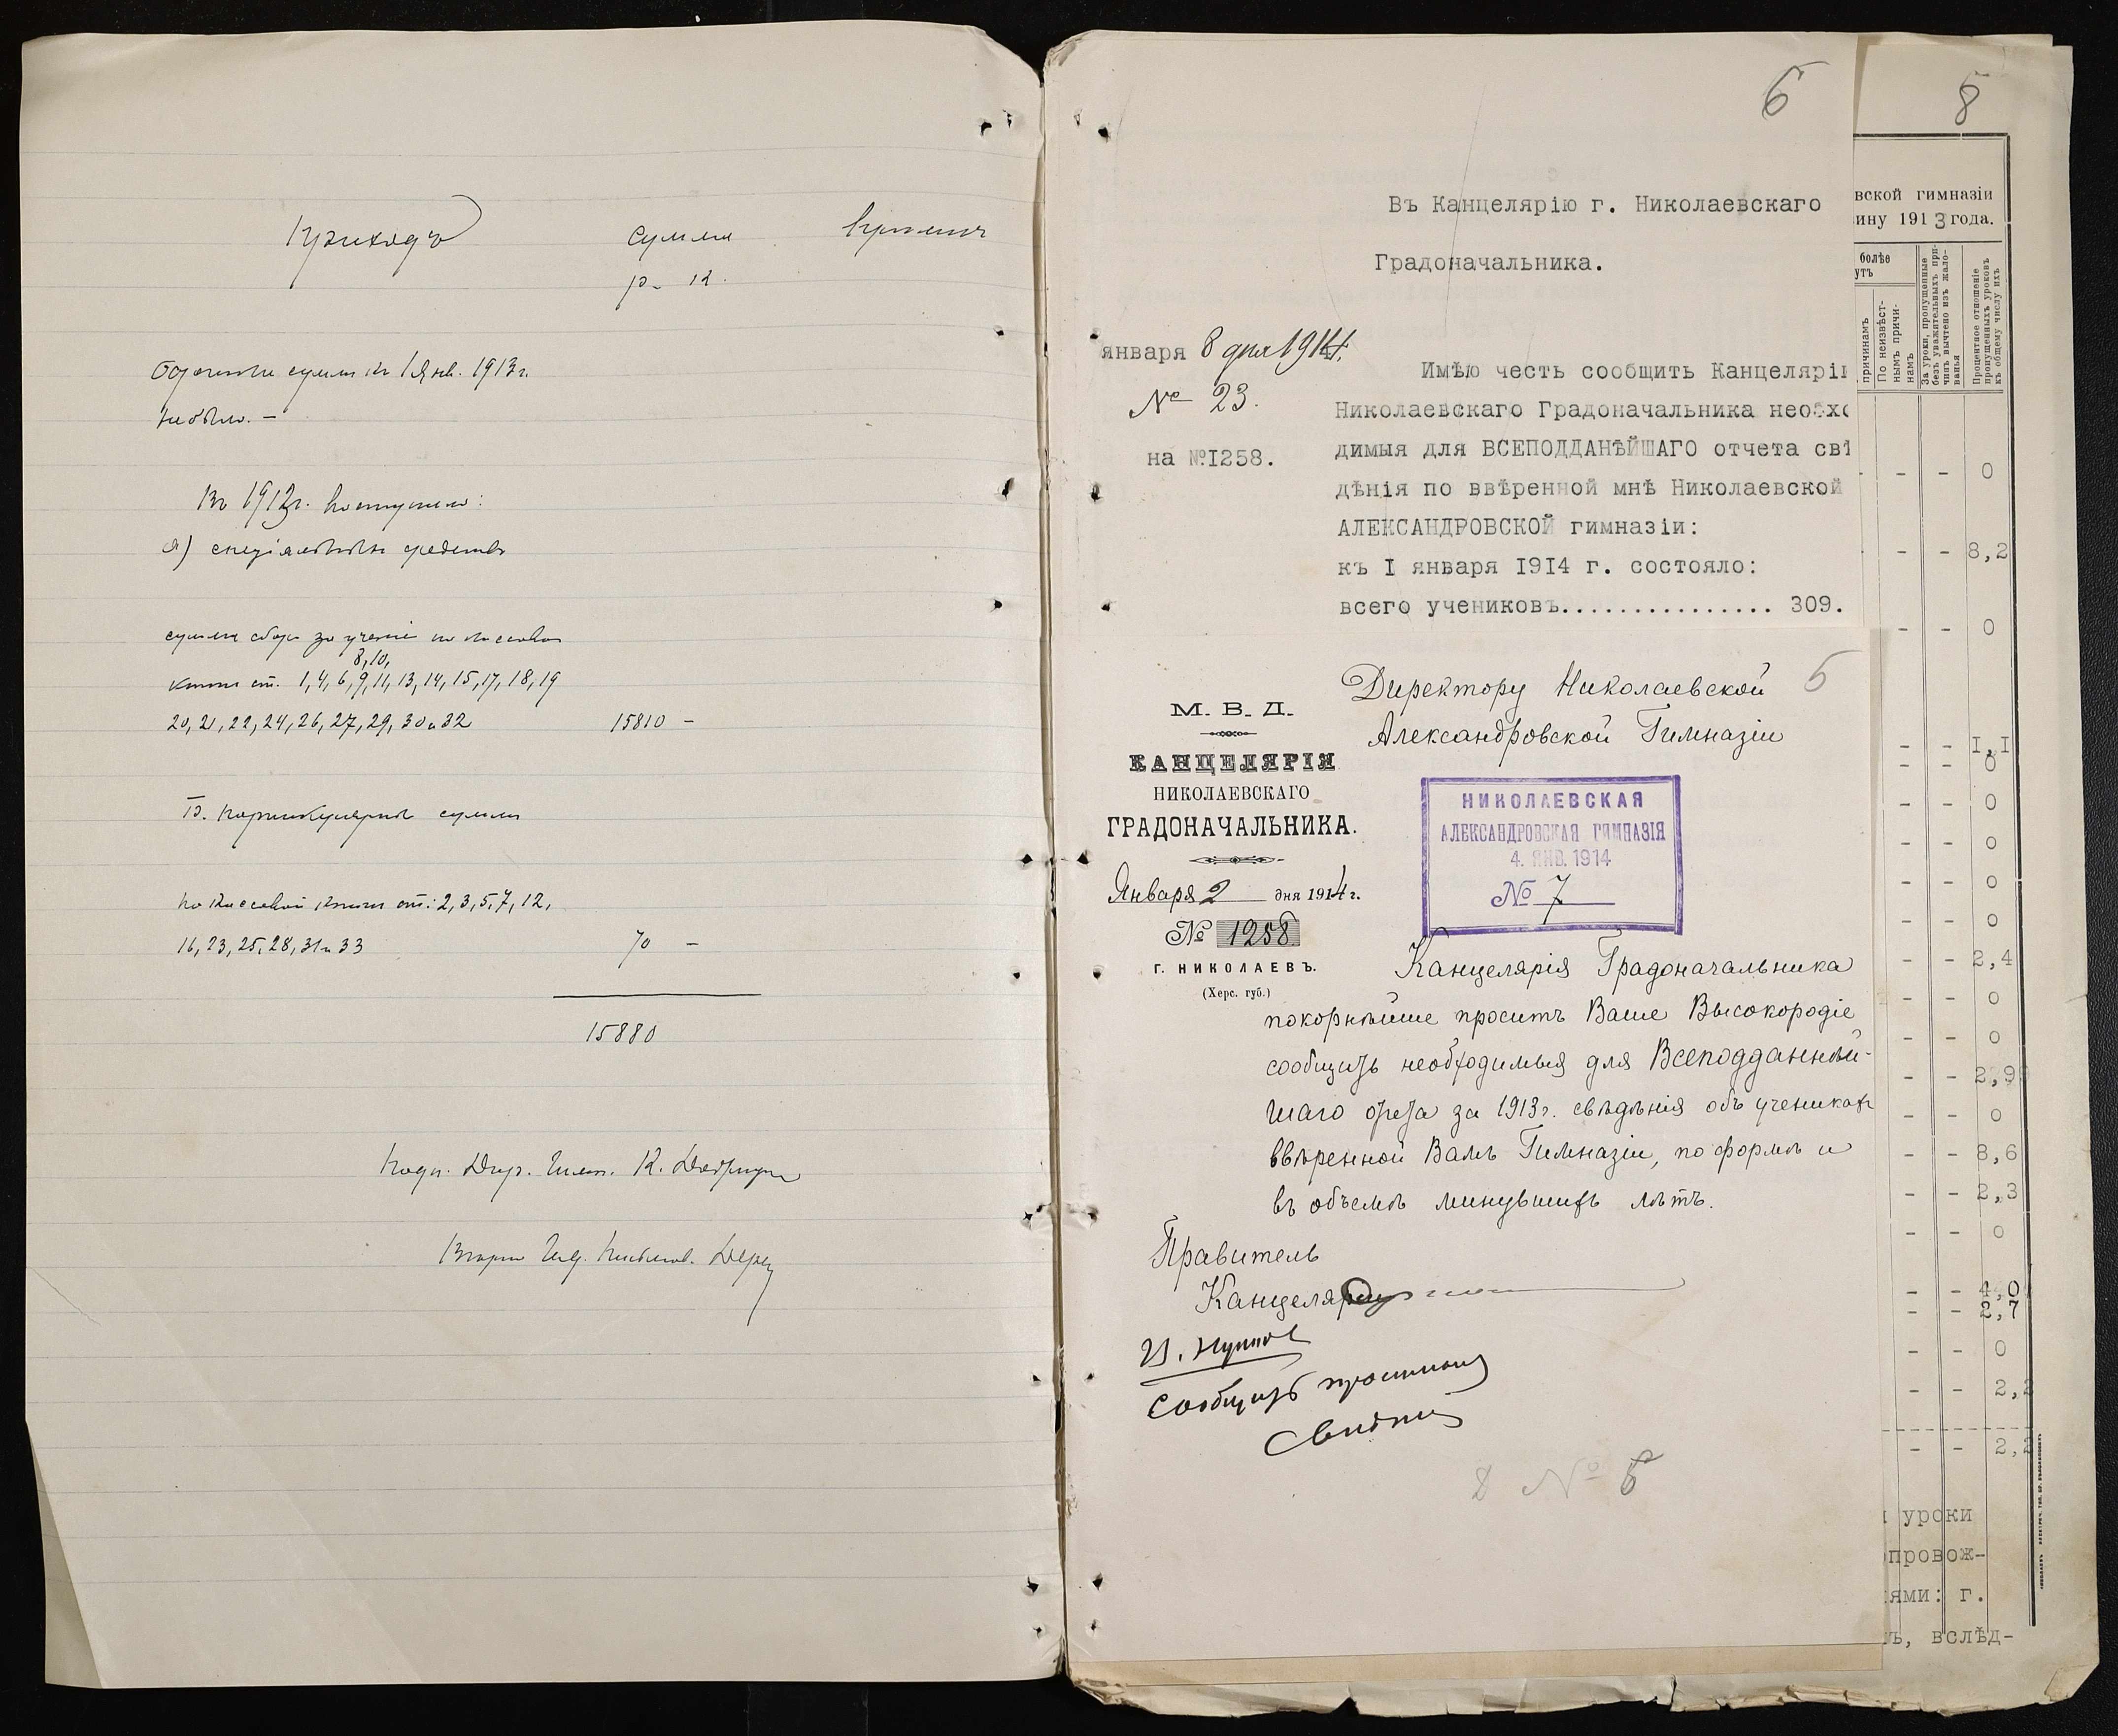 Приходъ сумма
р. к.
сумма къ 1 Янв. 1913 г.
не было. —
Въ 1913 г. поступило:
а) спеціальныхъ средствъ
сумма сбора за ученіе по кассовой
8, 10,
книгѣ ст. 1, 4, 6, 9, 11, 13, 14, 15, 17, 18, 19
20, 21, 22, 24, 26, 27, 29, 30 и 32 15810 —
суммы
по кассовой книгѣ ст.: 2, 3, 5, 7, 12,
16, 23, 25, 28, 31 и 33 70 —
15880
Подп. Дир. Гимн. К.
6
Въ Канцелярію г. Николаевскаго
Градоначальника.
января 8 дня 1914.
№ 23.
на №I258.
Имѣю честь сообщить Канцеляріи
Николаевскаго Градоначальника необхо
димыя для ВСЕПОДДАНѢЙШАГО отчета свѣ
дѣнія по ввѣренной мнѣ Николаевской
АЛЕКСАНДРОВСКОЙ гимназіи:
къ I января I9I4 г. состояло:
всего учениковъ............... 309.
Директору Николаевской
Александровской Гимназіи
5
М. В. Д.
КАНЦЕЛЯРІЯ
НИКОЛАЕВСКАГО
ГРАДОНАЧАЛЬНИКА.
Января 2 дня 1914 г.
№ 1258
Г. НИКОЛАЕВЪ.
(Херс. губ.)
НИКОЛАЕВСКАЯ
АЛЕКСАНДРОВСКАЯ ГИМНАЗІЯ
4. ЯНВ. 1914
№ 7
Канцелярія Градоначальника
покорнѣйше проситъ Ваше Высокородіе
сообщить необходимыя для Всеподданнѣй-
шаго отчета за 1913 г. свѣдѣнія объ ученикахъ
ввѣренной Вамъ Гимназіи, по формѣ и
въ объемѣ минувшихъ лѣтъ.
Правитель
Канцеляріи
Сообщить просимыя
свѣдѣнія
№ 5
8
вской гимназіи
ину 1913 года.
болѣе
утъ
причинамъ
По неизвѣст-
нымъ причи-
намъ
За уроки, пропущенные
безъ уважительныхъ при-
чинъ вычтено изъ жало-
ванья
Процентное отношеніе
пропущенныхъ уроковъ
къ общему числу ихъ
- - 0
- - 8,2
- - 0
- - I,I
- - 0
- - 0
- - 0
- - 0
- - 0
- - 2,4
- - 0
- - 0
- - 2,9
- - 0
- - 8,6
- - 2,3
- - 0
- - 4,0
- - 2,7
- - 0
- - 2,2
- - 2,2
уроки
опровож-
ями: г.
ъ, вслѣд-